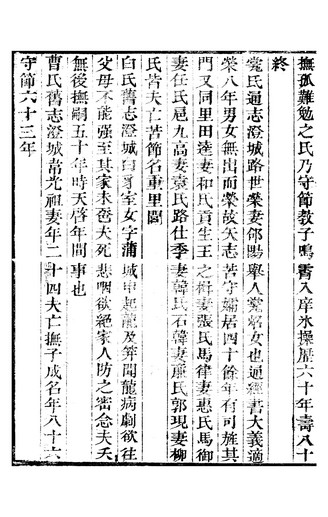 撫孤難勉之氏乃守節教子鳴霄入庠氷操歷六十年壽八十
終
党氏通志澄城路世榮妻郃陽舉人党炤女也通經書大義適
榮八年男女無出而榮故矢志苦守孀居四十餘年有司旌其
門又同里田逵妻和氏貢生王之樹妻張氏馬律妻惠氏馬御
妻任氏扈九高妻袁氏路仕季妻韓氏石韓妻雷氏郭現妻柳
氏皆夫亡苦節名重里閭
白氏舊志澄城白身室女字蒲城申起龍及笄聞龍病劇欲往
父母不能强至其家未卺夫死悲咽欲絕家人防之密念夫夭
無後撫嗣五十年時天啓年間事也
曹氏舊志澄城韋光祖妻年二十四夫亡撫子成名年八十六
守節六十三年